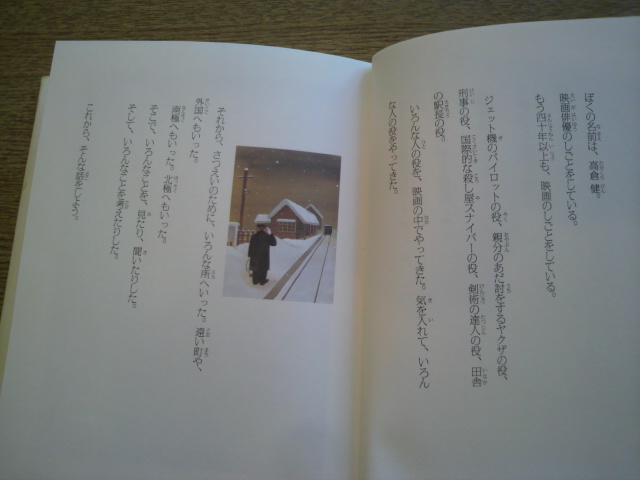 ぼくの名前は、高倉 健。
映画俳優のしごとをしている。
もう四十年以上も、映画のしごとをしている。
ジェット機のパイロットの役、親分のあだ討をするヤクザの役、
刑事の役、国際的な殺し屋スナイパーの役、剣術の達人の役、田舎
の駅長の役。
いろんな人の役を、映画の中でやってきた。気を入れて、いろん
な人の役をやってきた。
それから、さつえいのために、いろんな所へいった。遠い町や、
外国へもいった。
南極へもいった。北極へもいった。
そこで、いろんなことを、見たり、聞いたりした。
そして、いろんなことを考えたりした。
これから、そんな話をしよう。